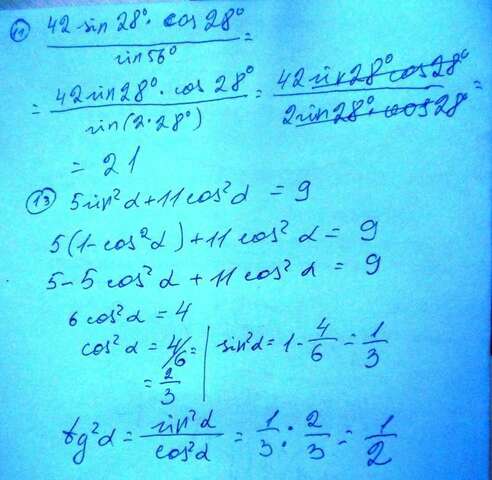 11 (42 sin 28° · cos 28°)/(sin 56°) =
= (42 sin 28° · cos 28°)/(sin(2·28°)) = (42 sin 28° cos 28°)/(2 sin 28° · cos 28°) =
= 21
13 5 sin²α + 11 cos²α = 9
5(1 - cos²α) + 11 cos²α = 9
5 - 5 cos²α + 11 cos²α = 9
6 cos²α = 4
cos²α = 4/6 = | sin²α = 1 - 4/6 = 1/3
= 2/3
tg²α = sin²α/cos²α = 1/3 : 2/3 = 1/2